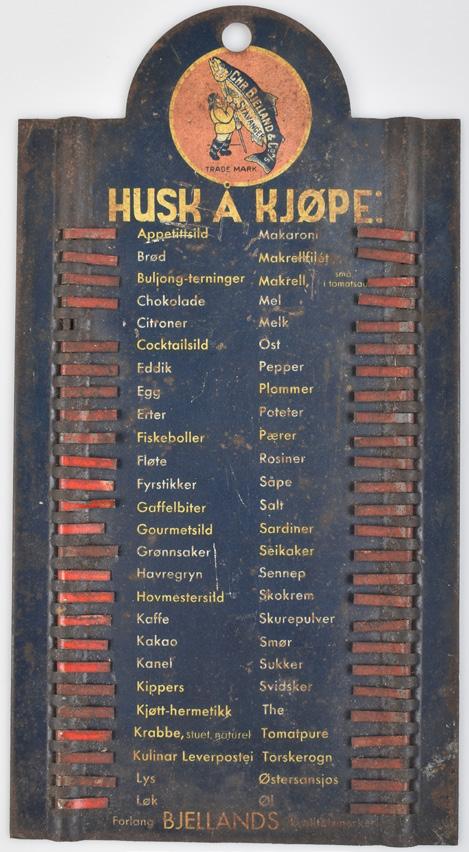 CHR. BJELLAND & CO. A/S
STAVANGER
TRADE MARK
HUSK Å KJØPE:
Appetittsild
Brød
Buljong-terninger
Chokolade
Citroner
Cocktailsild
Eddik
Egg
Erter
Fiskeboller
Fløte
Fyrstikker
Gaffelbiter
Gourmetsild
Grønnsaker
Havregryn
Hovmestersild
Kaffe
Kakao
Kanel
Kippers
Kjøtt-hermetikk
Krabbe, stuet, naturel
Kulinar Leverpostei
Lys
Løk
Makaroni
Makrellfilét
Makrell, små i tomatsaus
Mel
Melk
Ost
Pepper
Plommer
Poteter
Pærer
Rosiner
Såpe
Salt
Sardiner
Seikaker
Sennep
Skokrem
Skurepulver
Smør
Sukker
Svidsker
The
Tomatpure
Torskerogn
Østersansjos
Øl
Forlang BJELLANDS kvalitetsmerker